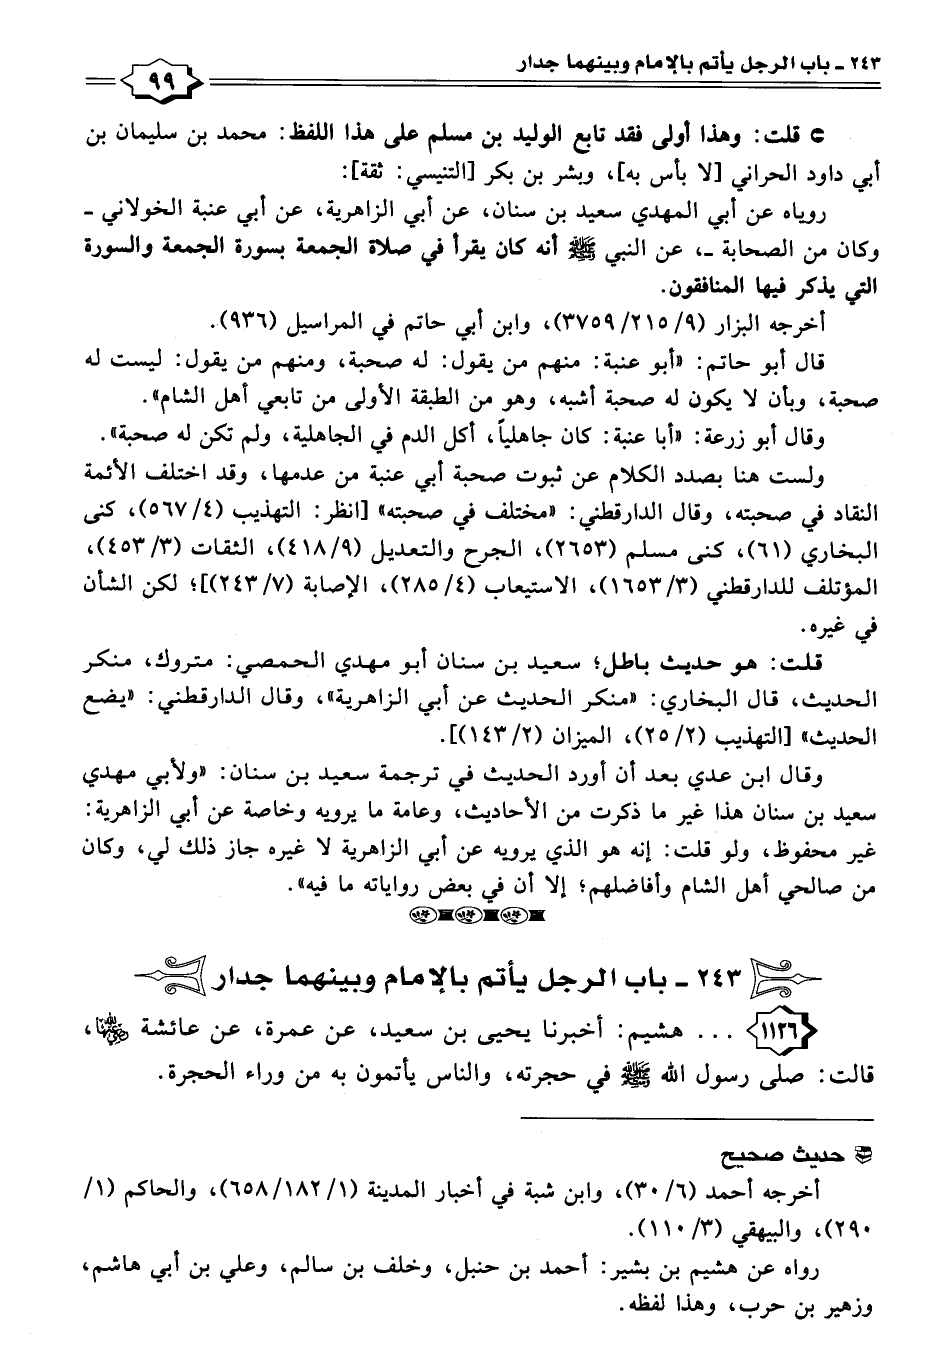 ٢٤٣ - باب الرجل يأتم بالإمام وبينهما جدار
٩٩
قلت: وهذا أولى فقد تابع الوليد بن مسلم على هذا اللفظ: محمد بن سليمان بن
أبي داود الحراني [لا بأس به]، وبشر بن بكر [التنيسي: ثقة]:
روياه عن أبي المهدي سعيد بن سنان، عن أبي الزاهرية، عن أبي عنبة الخولاني -
وكان من الصحابة -، عن النبي ﷺ أنه كان يقرأ في صلاة الجمعة بسورة الجمعة والسورة
التي يذكر فيها المنافقون.
أخرجه البزار (٩/ ٢١٥/ ٣٧٥٩)، وابن أبي حاتم في المراسيل (٩٣٦).
قال أبو حاتم: «أبو عنبة: منهم من يقول: له صحبة، ومنهم من يقول: ليست له
صحبة، وبأن لا يكون له صحبة أشبه، وهو من الطبقة الأولى من تابعي أهل الشام».
وقال أبو زرعة: «أبا عنبة: كان جاهلياً، أكل الدم في الجاهلية، ولم تكن له صحبة».
ولست هنا بصدد الكلام عن ثبوت صحبة أبي عنبة من عدمها، وقد اختلف الأئمة
النقاد في صحبته، وقال الدارقطني: «مختلف في صحبته» [انظر: التهذيب (٤/ ٥٦٧)، كنى
البخاري (٦١)، كنى مسلم (٢٦٥٣)، الجرح والتعديل (٩/ ٤١٨)، الثقات (٣/ ٤٥٣)،
المؤتلف للدارقطني (٣/ ١٦٥٣)، الاستيعاب (٤/ ٢٨٥)، الإصابة (٧/ ٢٤٣)]؛ لكن الشأن
في غيره.
قلت: هو حديث باطل؛ سعيد بن سنان أبو مهدي الحمصي: متروك، منكر
الحديث، قال البخاري: «منكر الحديث عن أبي الزاهرية»، وقال الدارقطني: «يضع
الحديث» [التهذيب (٢/ ٢٥)، الميزان (٢/ ١٤٣)].
وقال ابن عدي بعد أن أورد الحديث في ترجمة سعيد بن سنان: «ولأبي مهدي
سعيد بن سنان هذا غير ما ذكرت من الأحاديث، وعامة ما يرويه وخاصة عن أبي الزاهرية:
غير محفوظ، ولو قلت: إنه هو الذي يرويه عن أبي الزاهرية لا غيره جاز ذلك لي، وكان
من صالحي أهل الشام وأفاضلهم؛ إلا أن في بعض رواياته ما فيه».
٢٤٣ - باب الرجل يأتم بالإمام وبينهما جدار
١١٢٦ ... هشيم: أخبرنا يحيى بن سعيد، عن عمرة، عن عائشة رضي الله عنها،
قالت: صلى رسول الله ﷺ في حجرته، والناس يأتمون به من وراء الحجرة.
حديث صحيح
أخرجه أحمد (٦/ ٣٠)، وابن شبة في أخبار المدينة (١/ ١٨٢/ ٦٥٨)، والحاكم (١/
٢٩٠)، والبيهقي (٣/ ١١٠).
رواه عن هشيم بن بشير: أحمد بن حنبل، وخلف بن سالم، وعلي بن أبي هاشم،
وزهير بن حرب، وهذا لفظه.